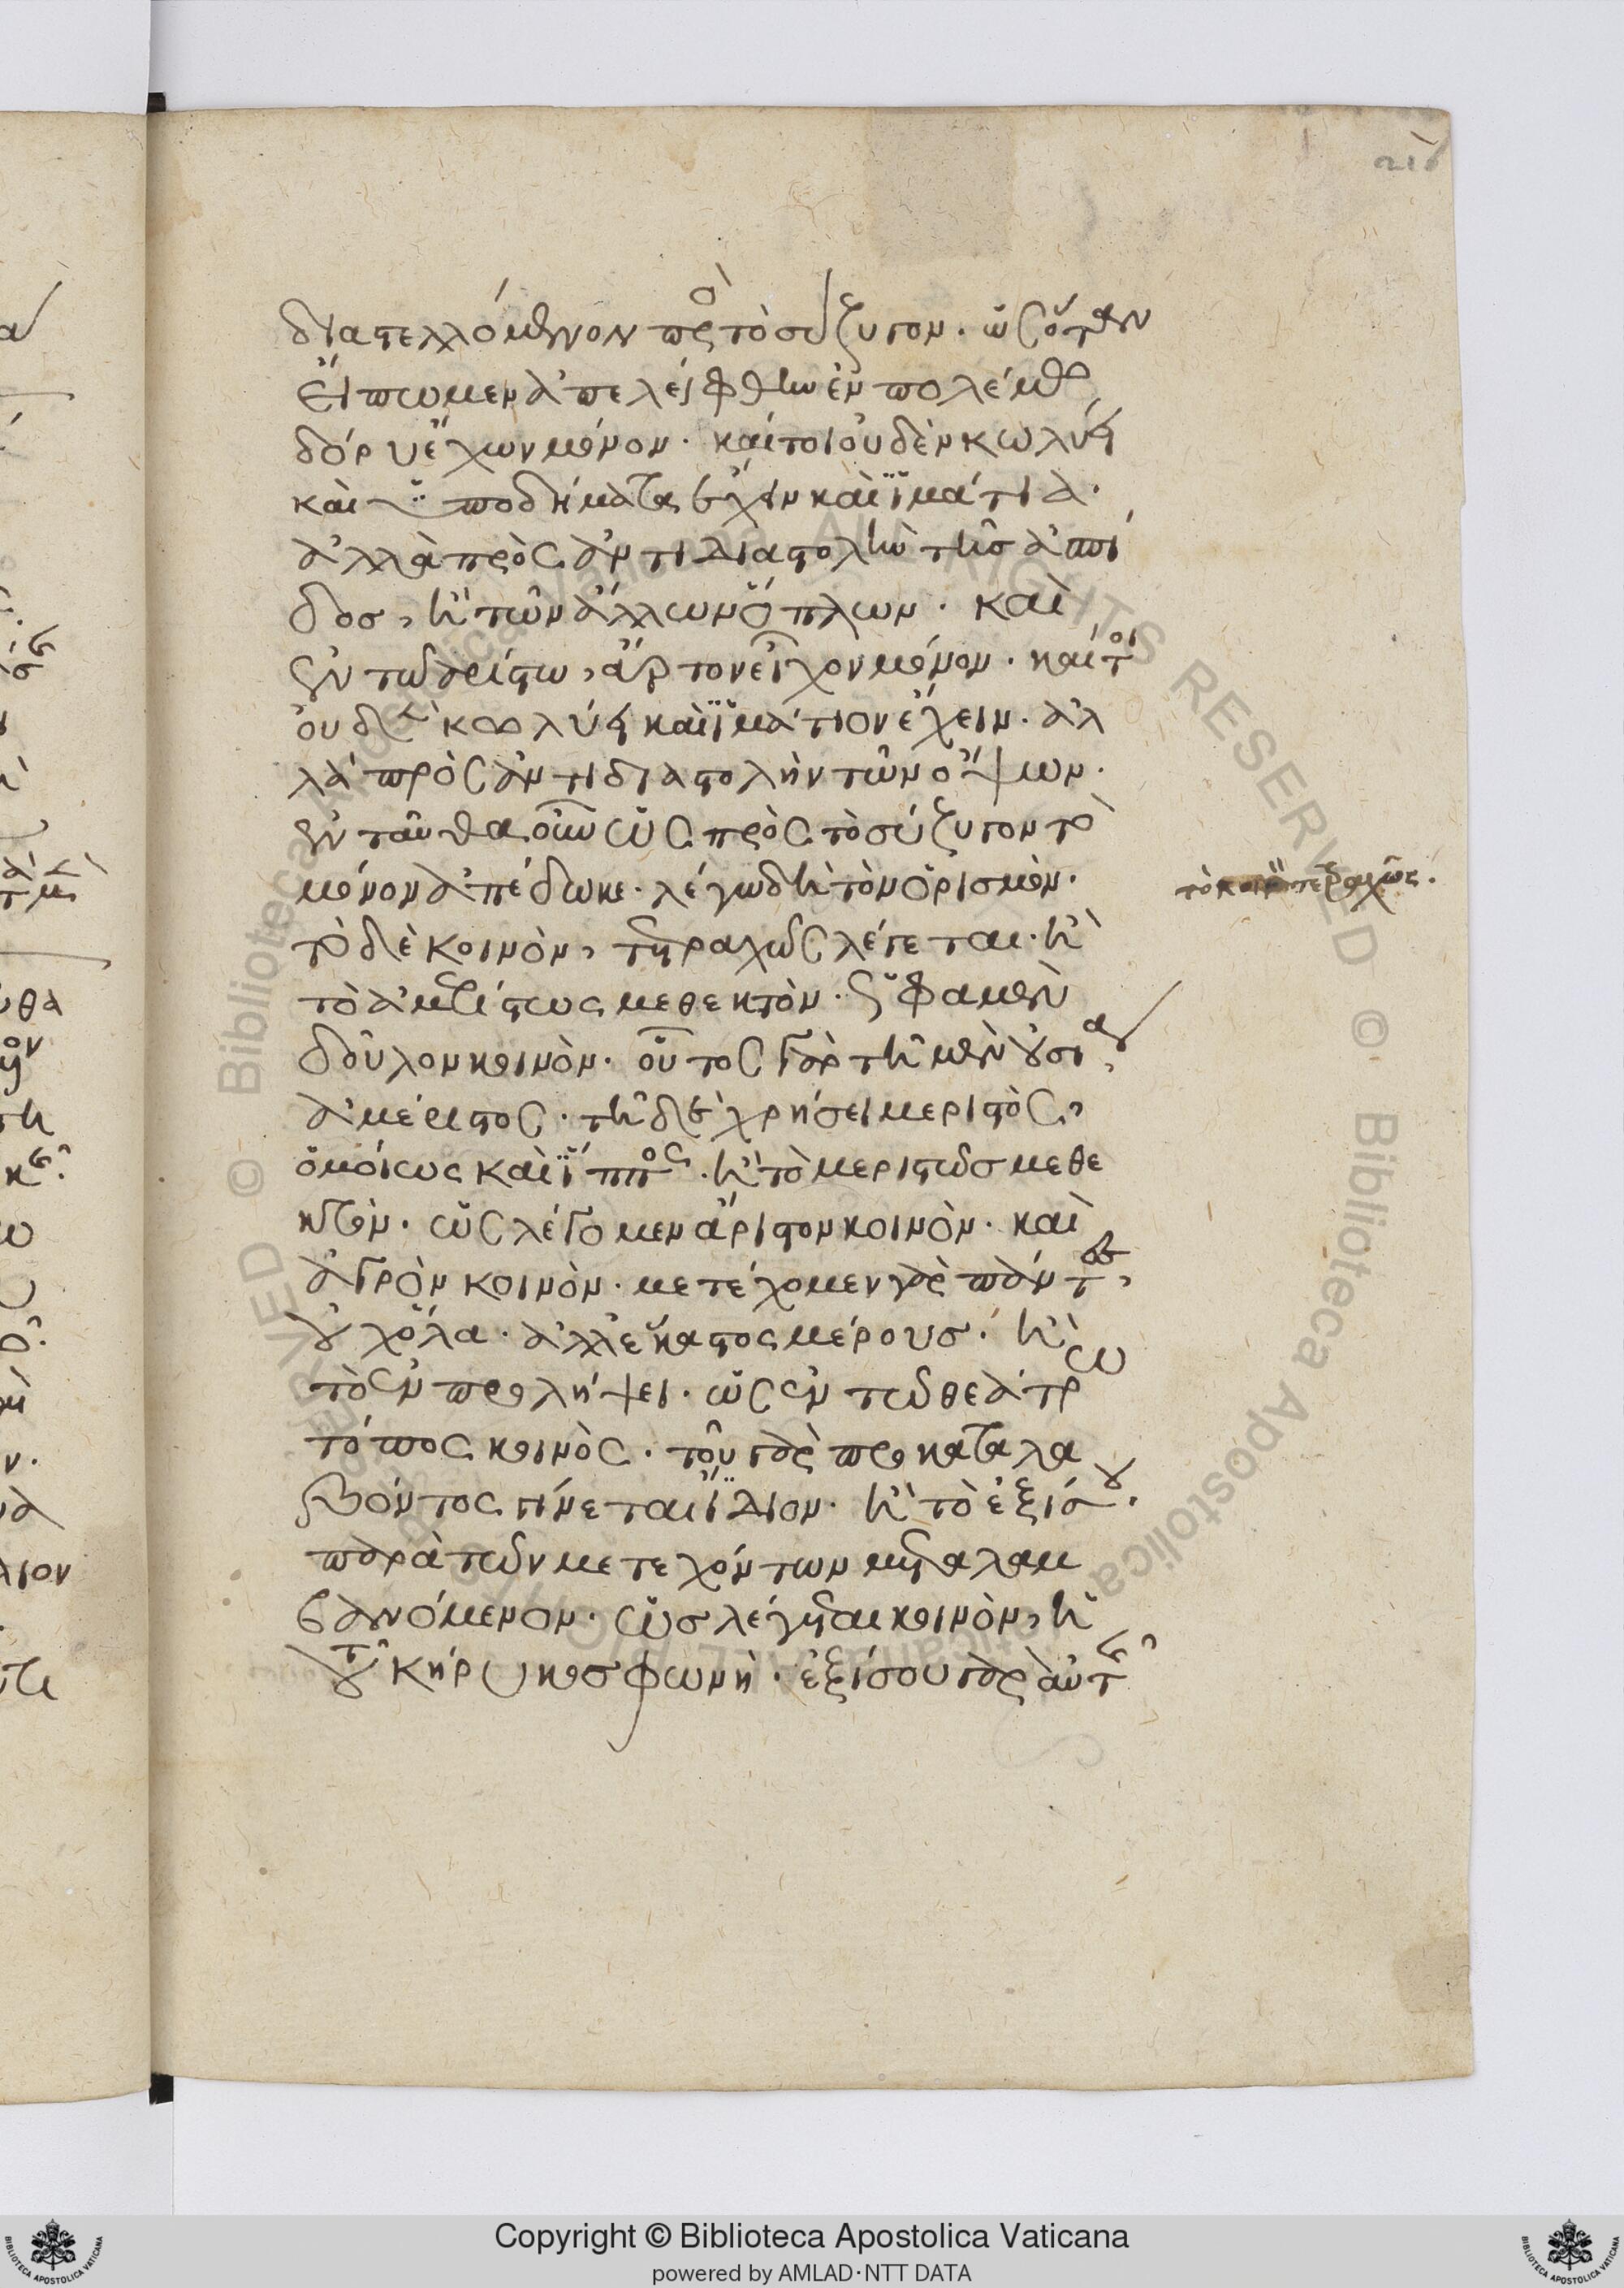 διαστελλόμενον πρὸς τὸ σύζυγον. ὡς ὅταν
εἴπωμεν ἀπελείφθην ἐν πολέμω
δόρυ ἔχων μόνον. καίτοι οὐδὲν κωλύει
καὶ ὑποδήματα ἔχειν καὶ ἱμάτια.
ἀλλὰ πρὸς ἀντιδιαστολὴν τῆς ἀσπί
δος, καὶ τῶν ἄλλων ὅπλων. καὶ
ἐν τῶ ἀρίστω, ἄρτον εἶχον μόνον. καίτοι
οὐδὲν κωλύει καὶ ἱμάτιον ἔχειν. ἀλ
λὰ πρὸς ἀντιδιαστολὴν τῶν ὄψων.
ἐνταῦθα οὖν ὡς πρὸς τὸ σύζυγον τὸ
μόνον ἀπέδωκε. λέγω δὴ τὸν ὁρισμόν.
τὸ δὲ κοινὸν, τετραχῶς λέγεται. καὶ
τὸ ἀμερίστως μεθεκτὸν. ὥς φαμεν
δοῦλον κοινὸν. οὗτος γὰρ τῆ μὲν οὐσία,
ἀμέριστος. τῆ δὲ χρήσει μεριστὸς,
ὁμοίως καὶ ἵππος. καὶ τὸ μεριστῶς μεθε
κτὸν. ὡς λέγομεν ἄριστον κοινὸν. καὶ
ἀγρὸν κοινὸν. μετέχομεν γὰρ πάντες,
οὐχ ὅλα. ἀλλ' ἕκαστος μέρους. καὶ
τὸ ἐν προλήψει. ὡς ἐν τῶ θεάτρω
τόπος κοινὸς. τοῦ γὰρ προκαταλα
βόντος γίνεται ἴδιον. καὶ τὸ ἐξίσου.
παρὰ τῶν μετεχόντων μεταλαμ
βανόμενον. ὡς λέγεται κοινὸν, ἡ
τοῦ κήρυκος φωνὴ. ἐξίσου γὰρ αὐτῆς
τὸ κοινὸν τετραχῶς.